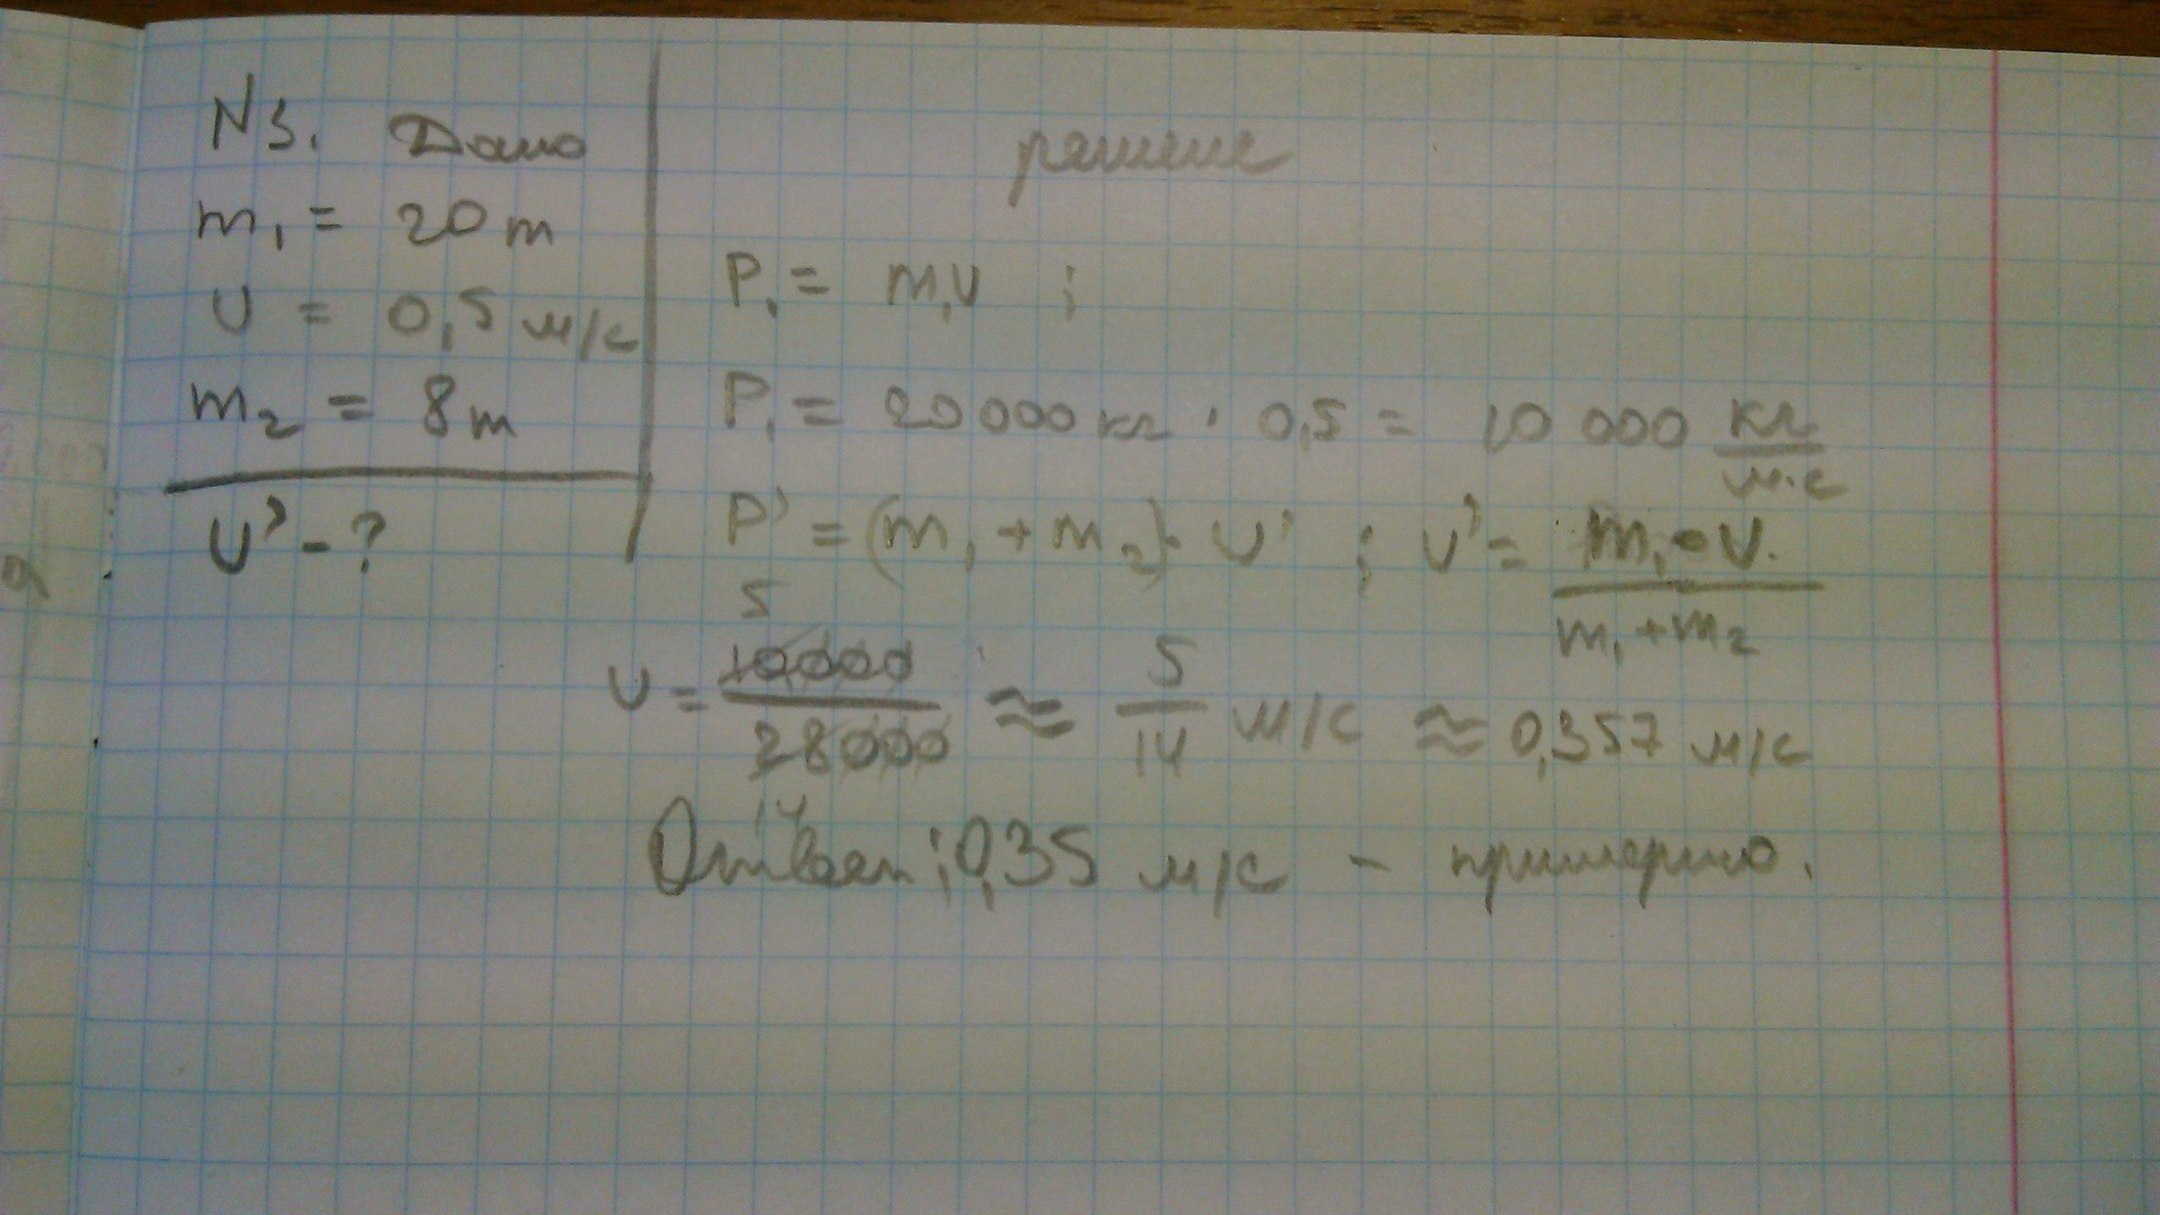 N3. Дано
m₁ = 20 т
υ = 0,5 м/с
m₂ = 8 т
υ' - ?
решение
P₁ = m₁υ ;
P₁ = 20 000 кг · 0,5 = 10 000 кг/м·с
P' = (m₁ + m₂) · υ' ; υ' = m₁ · υ / m₁ + m₂
5
υ = 10000/28000 ≈ 5/14 м/с ≈ 0,357 м/с
14
Ответ: 0,35 м/с - примерно.